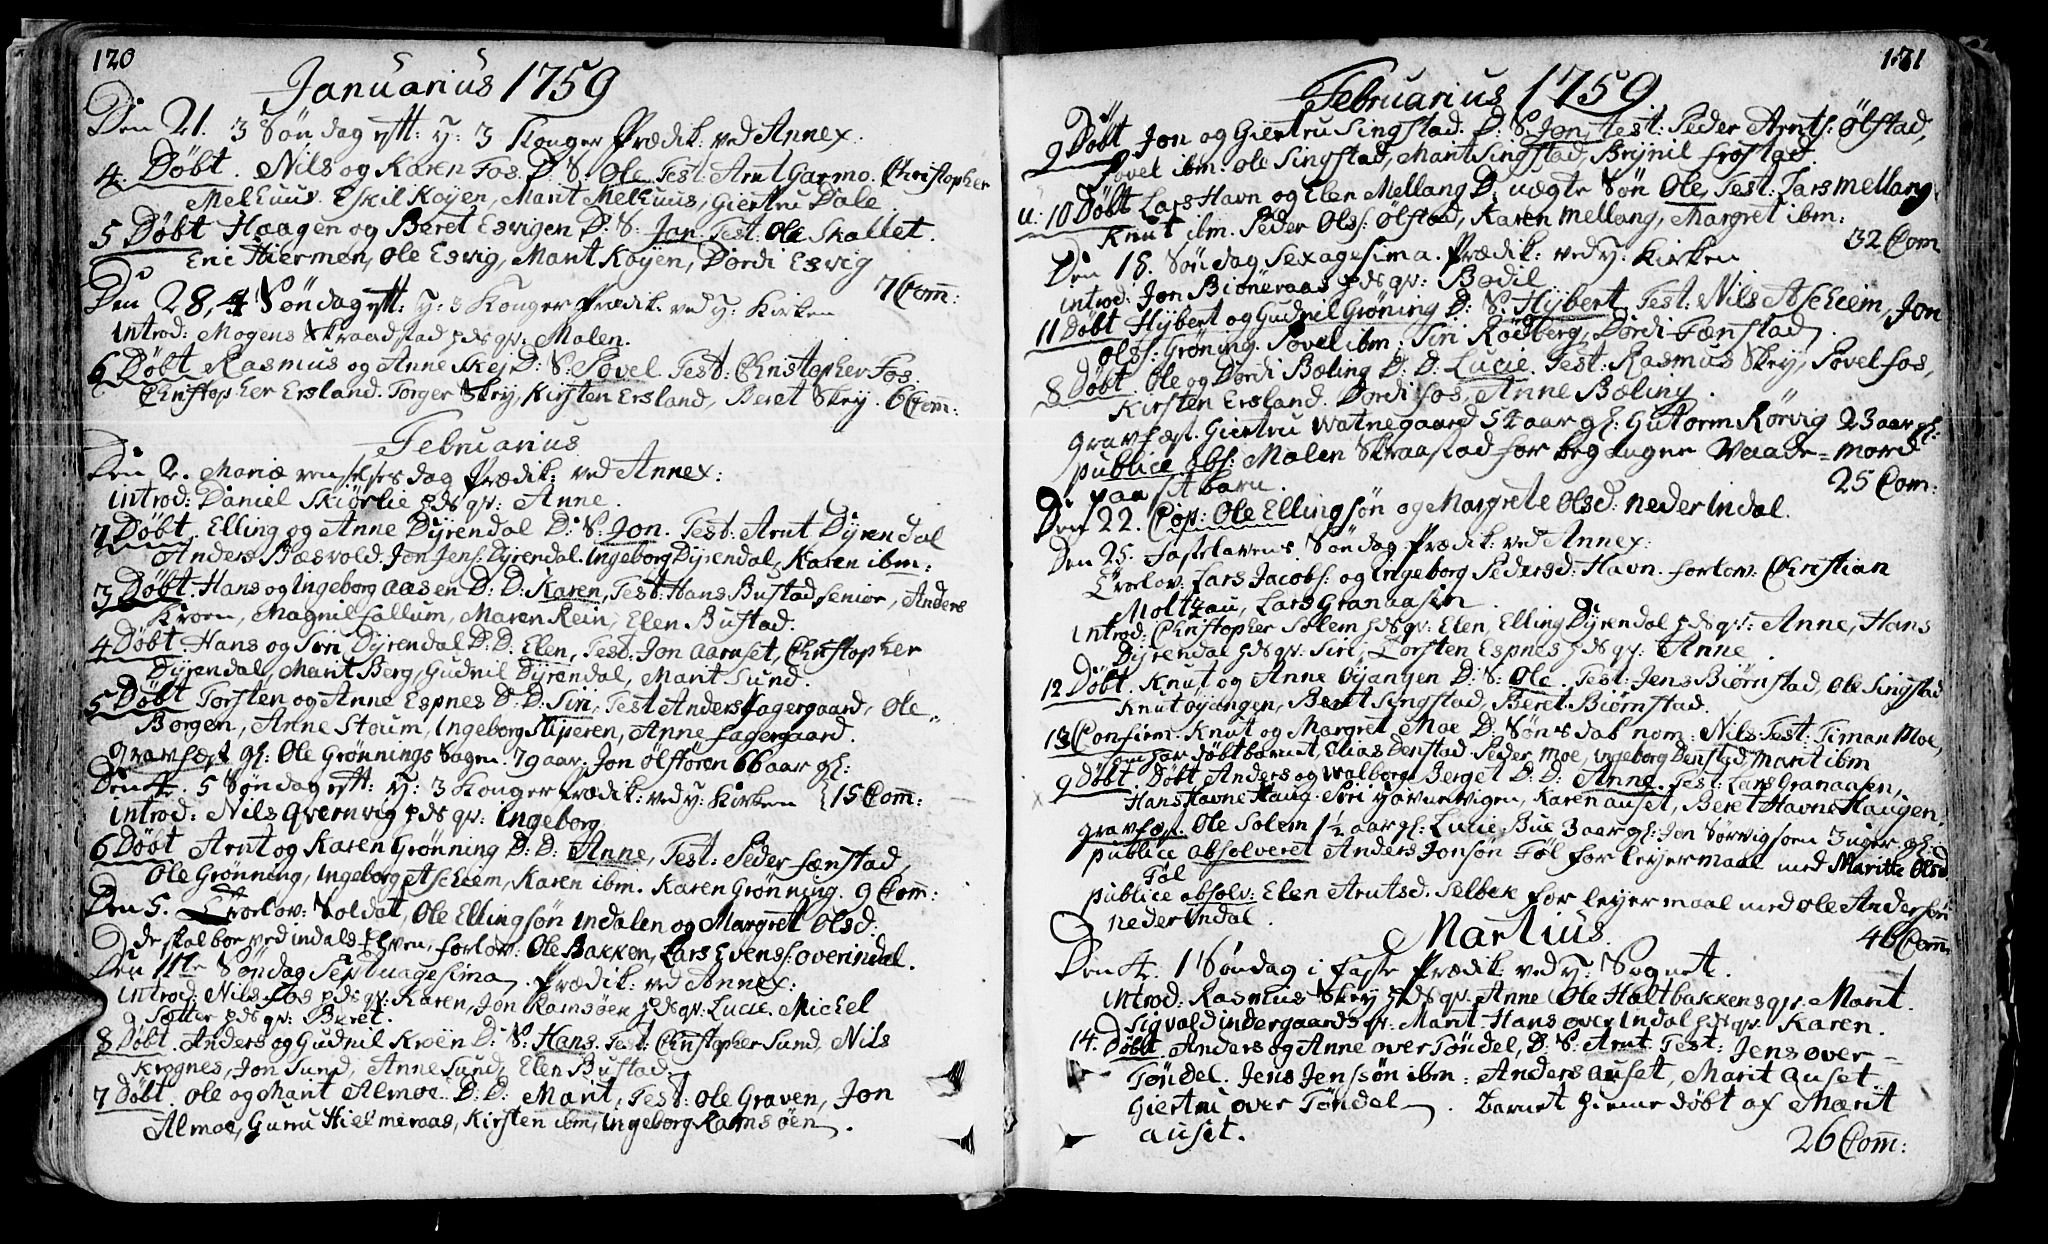 120
Januarius 1759
Den 21. 3 Søndag eftt: H: 3 Konger Prædik: ved Annex:
4. Døbt. Nils og Karen Fos. D. S. Ole Test: Arnt Garmo. Christopher
Melhuus. Eskil Koyen, Marit Melhuus, Giertru Dale.
5 Døbt Haagen og Beret Esvigen D: S: Jon Test: Ole Skallet.
Eric Hiermen, Ole Esvig, Marit Koyen, Dordi Esvig
7 Com:
Den 28, 4 Søndag eftt: H: 3 Konger Prædik: ved H: Kirken
introd: Mogens Skraastad hds qv: Malen.
6 Døbt Rasmus og Anne Skej D: S: Povel. Test: Christopher Fos
Christopher Ersland. Torger Skey, Kirsten Ersland, Beret Skey. 6 Com:
Februarius
Den 2. Mariæ renselses dag Prædik: ved Annex:
introd: Daniel Skiørlie hds qv: Anne.
7 Døbt. Elling og Anne Dyrendal D: S: Jon. Test: Arnt Dyrendal
Anders Bæsvold. Jon Jens: Dyrendal. Ingeborg Dyrendal, Karen ibm:
3 Døbt. Hans og Ingeborg Aasen D: D: Karen, Test: Hans Bustad senior, Anders
Kroen, Magnil Fallum, Maren Rein, Elen Bustad.
4 Døbt Hans og Siri Dyrendal D: D. Elen, Test: Jon Aarnset, Christopher
Dyrendal, Marit Berg, Gudnil Dyrendal, Marit Sund.
5 Døbt Torsten og Anne Espnes D: D: Siri, Test Anders Fagergaard, Ole
Borgen, Anne Stoum, Ingeborg Stiperen, Anne Fagergaard.
Gravfæst gl: Ole Grønnings Sogn. 79 aar. Jon Ølfføren 66 aar gl:
Den 4. 5 Søndag eftt: H: 3 Konger Prædik: ved H: Kirken 15 Com:
introd: Nils Qvernvig hds qv: Ingeborg
6 Døbt Arnt og Karen Grønning D: D: Anne, Test: Peder Fænstad
Ole Grønning, Ingeborg Ascheem, Karen ibm. Karen Grønning. 9 Com:
Den 5. Trolov: Soldat, Ole Ellingsøn Indalen og Margret Olsd:
de skal boe ved indals Elven, forlov: Ole Bakken, Lars Evens: overindal.
Den 11te Søndag Septuagesima. Prædik: ved Annex:
introd: Nils Fos hds qv: Karen, Jon Ramsøen hds qv: Lucie. Michel
Sætter hds qv: Beret.
8 Døbt. Anders og Gudnil Kroën D: S: Hans. Test: Christopher Sund, Nils
Krognes, Jon Sund, Anne Sund, Elen Bustad
7 Døbt. Ole og Marit Almoe. D: D: Marit, Test: Ole Graven, Jon
Almoe, Guru Hielmeraas, Kirsten ibm, Ingeborg Ramsøen.
121
Februarius 1759
9 Døbt Jon og Giertru Singstad. D: S. Jon, Test: Peder Arnts: Ølstad,
Povel ibm. Ole Singstad, Marit Singstad, Brynil Frøstad.
u: 10 Døbt Lars Havn og Elen Mellang D. uægte Søn Ole, Test: Lars Mellang,
Knut ibm. Peder Ols: Ølstad, Karen Mellang, Margret ibm:
32 Com
Den 18. Søndag Sexagesima. Prædik: ved H. Kirken
introd: Jon Biøneraas hds qv: Bodil.
11 Døbt Hybert og Gudnil Grøning D: S: Hybert, Test: Nils Ascheim, Jon
Ols: Grøning. Povel ibm: Siri Rødberg, Dordi Fænstad.
8 Døbt. Ole og Dordi Bæling D: D. Lucie. Test: Rasmus Skey, Povel Fos,
Kirsten Ersland. Dordi Fos, Anne Bæling.
Gravfæst. Giertru Watnegaard 54 aar gl: Gutorm Rørvig 23 aar gl:
publice abs: Malen Skraastad for begangne Vaade-mord
paa sit barn.
25 Com:
Den 22. Cop: Ole Ellingsøn og Margrete Olsd: Nederindal.
Den 25. Fastelavens Søndag Prædik: ved Annex:
Trolov: Lars Jacobs: og Ingeborg Pedersd: Havn. forlov: Christian
Moltzau, Lars Granaasen.
introd: Christopher Solem hds qv: Elen, Elling Dyrendal hds qv: Anne, Hans
Dyrendal hds qv: Siri, Torsten Espnes hds qv: Anne.
12 Døbt. Knut og Anne Øyangen D: S: Ole. Test: Jens Biørnstad, Ole Singstad
Knut Øyangen, Beret Singstad, Beret Biørnstad.
13 Confirm. Knut og Margret Moe D: Søns dab nom: Nils Test: Timan Moe,
som har døbt barnet Elias Denstad. Peder Moe, Ingeborg Denstad Marit ibm
9 Døbt. Døbt Anders og Walborg Berget D: D: Anne. Test: Lars Granaasen,
Hans Havne Haug. Siri Havnevigen, Karen Auset, Beret Havne Haugen.
Gravfæst. Ole Solem 1 1/2 aar gl: Lucie Bue 3 aar gl: Jon Sørvigsøen 3 uger gl:
publice absolveret Anders Jonsøn Føl for leyermaal med Maritte Olsd
Føl
publice absolv: Elen Arntsd. Selbek for leyermaal med Ole Andersøn
Nederindal.
46 Com:
Martius.
Den 4. 1 Søndag i Faste Prædik: ved H: Sognet.
introd: Rasmus Skey hds qv: Anne Ole Haltbakkens qv: Marit.
Sigvald Indergaards qv: Marit. Hans over Indal hds qv: Karen.
14. Døbt. Anders og Anne over Tøndel, D: S: Arnt. Test: Jens over-
Tøndel. Jens Jenssøn ibm: Anders Auset, Marit Auset.
Giertru over Tøndel. Barnet hieme døbt af Marit
Auset.
26 Com: